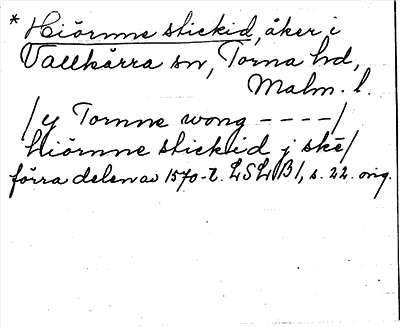 * Hiörnne stickid, åker i
Vallkärra sn, Torna hd,
Malm. l.
/y Tornne wong ----/
hiörnne stickid j skē/
förra delen av 1570-t. LSLB1, s. 22. orig.